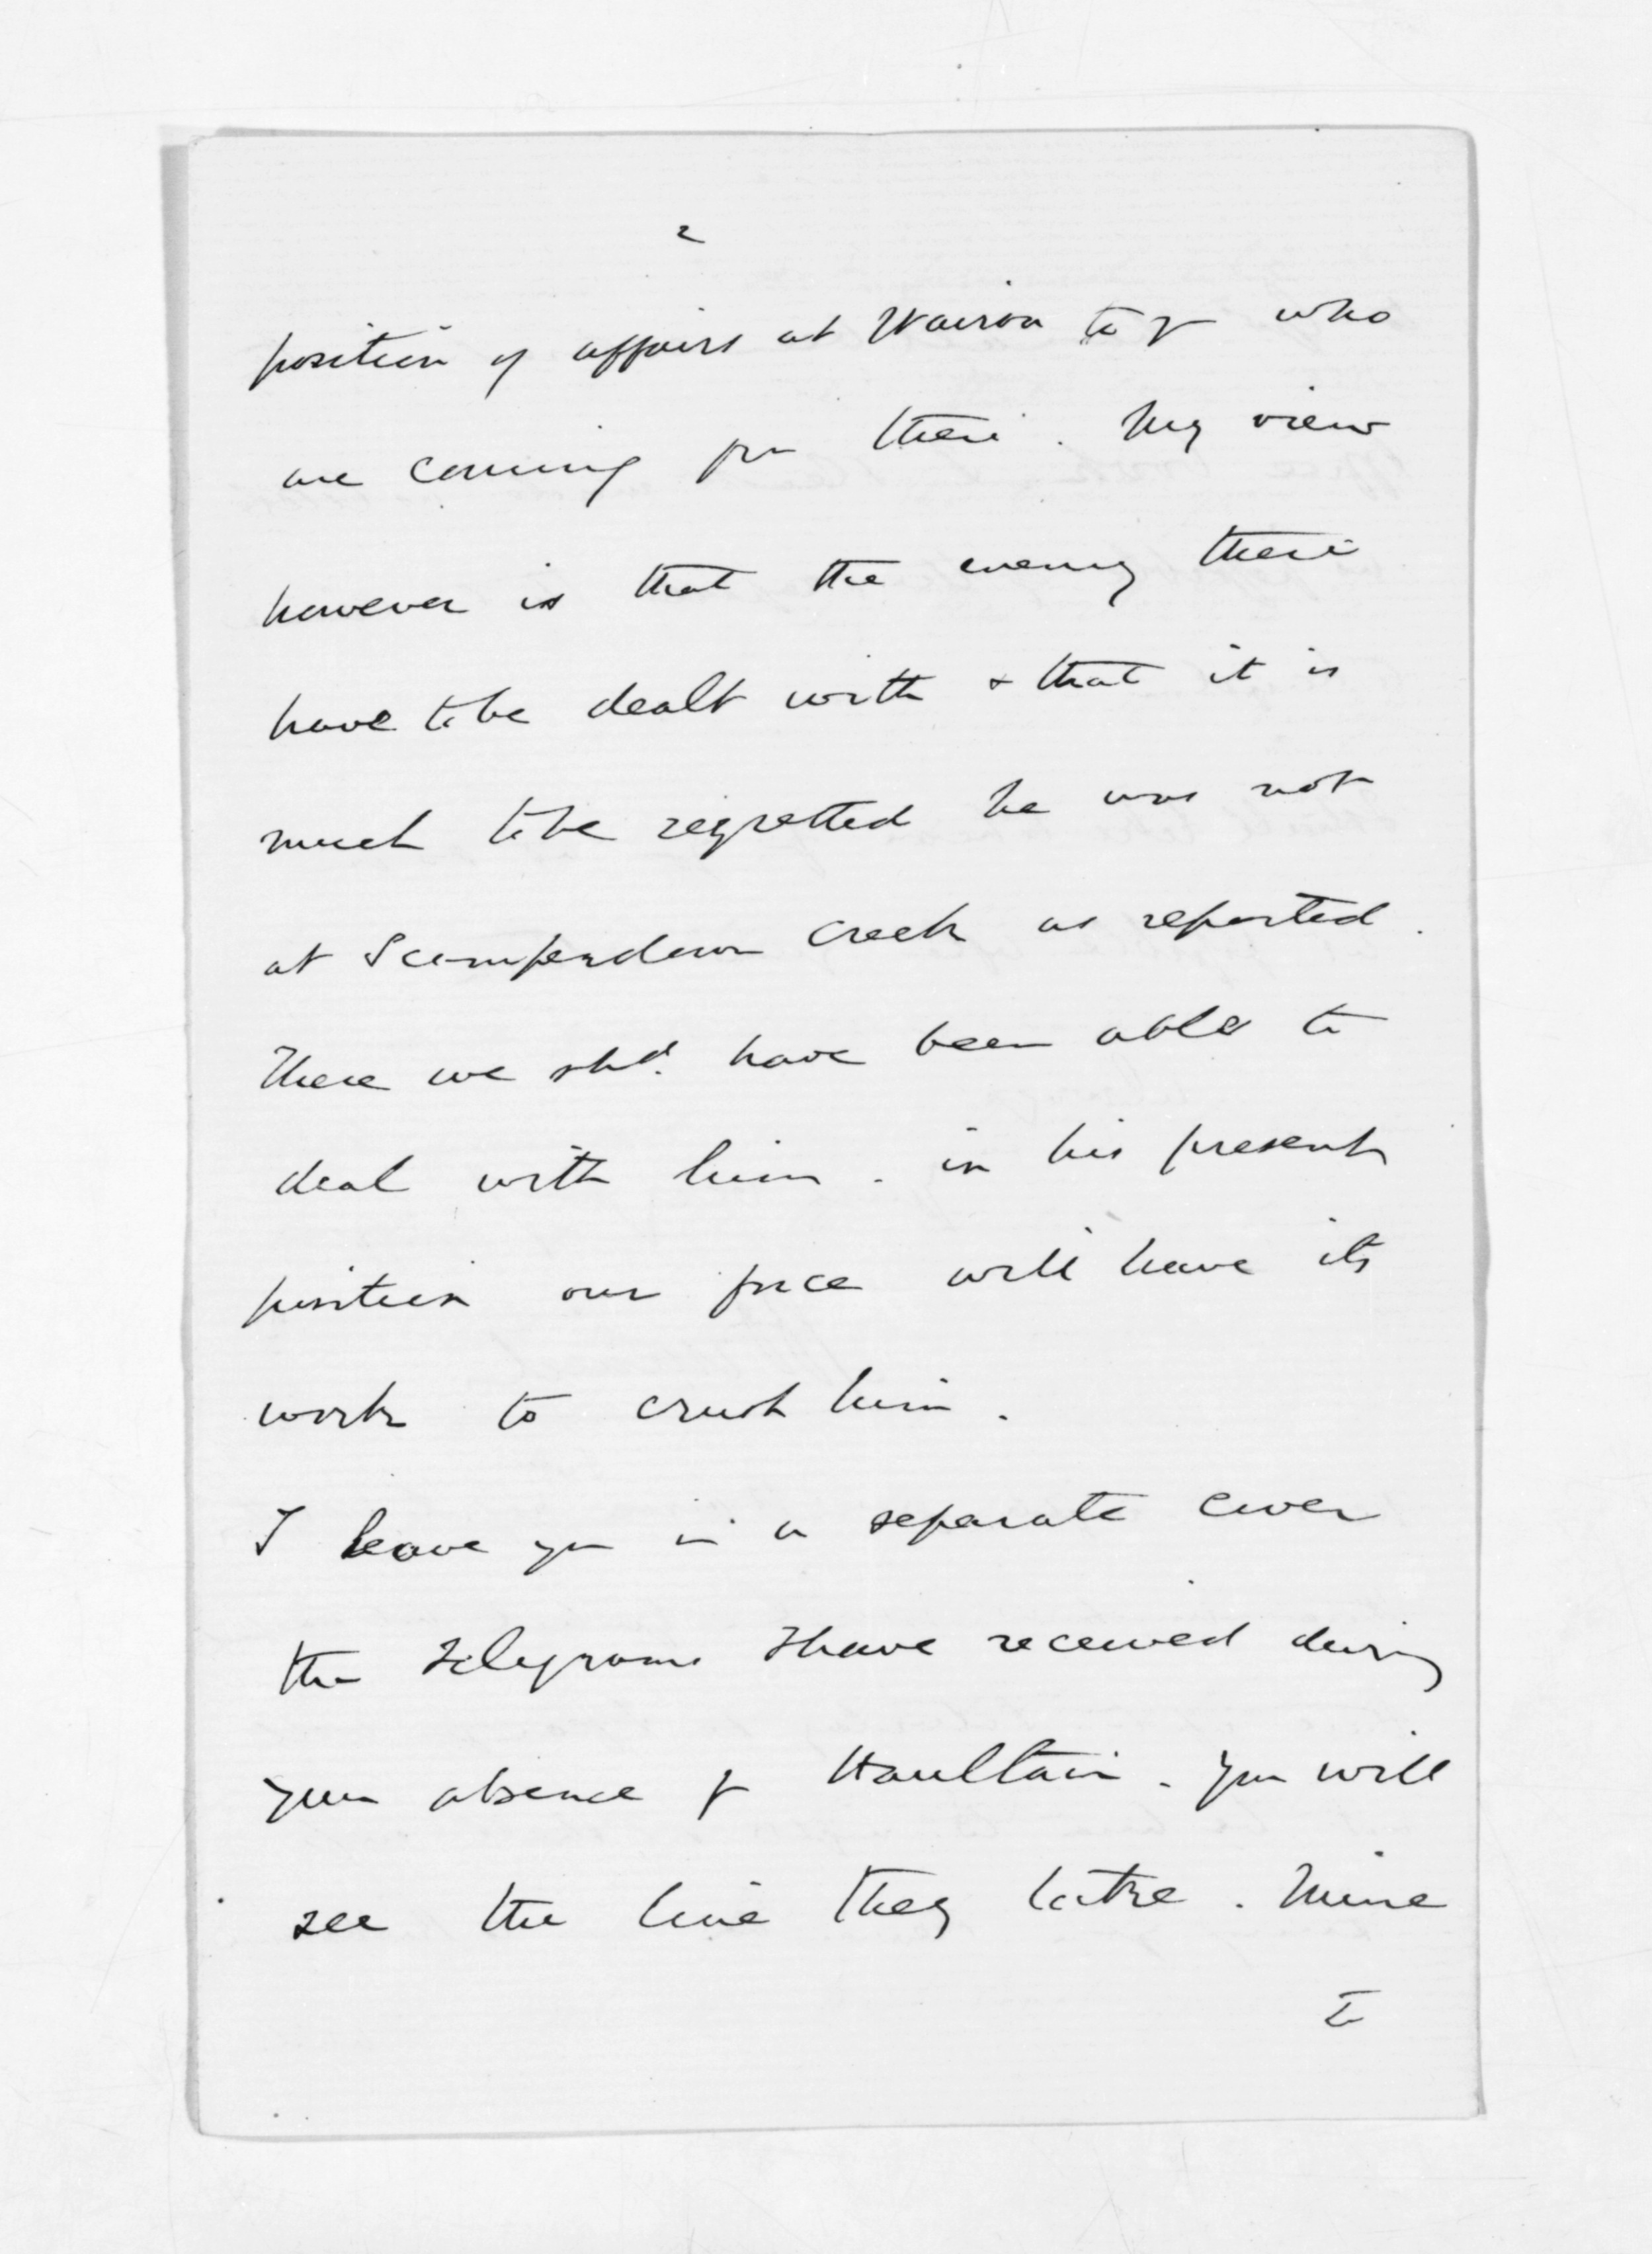 2
position of affairs at Wairoa to yr who
are coming from there. My view
however is that the enemy there
have to be dealt with & that it is
much to be regretted he was not
at Scamperdown Creek as reported.
There we shd. have been able to
deal with him. in his present
position our force will have its
work to crush him.
I leave you in a separate cover
the telegrams I have received during
your absence fr Haultain. You will
see the line they take. Mine
to